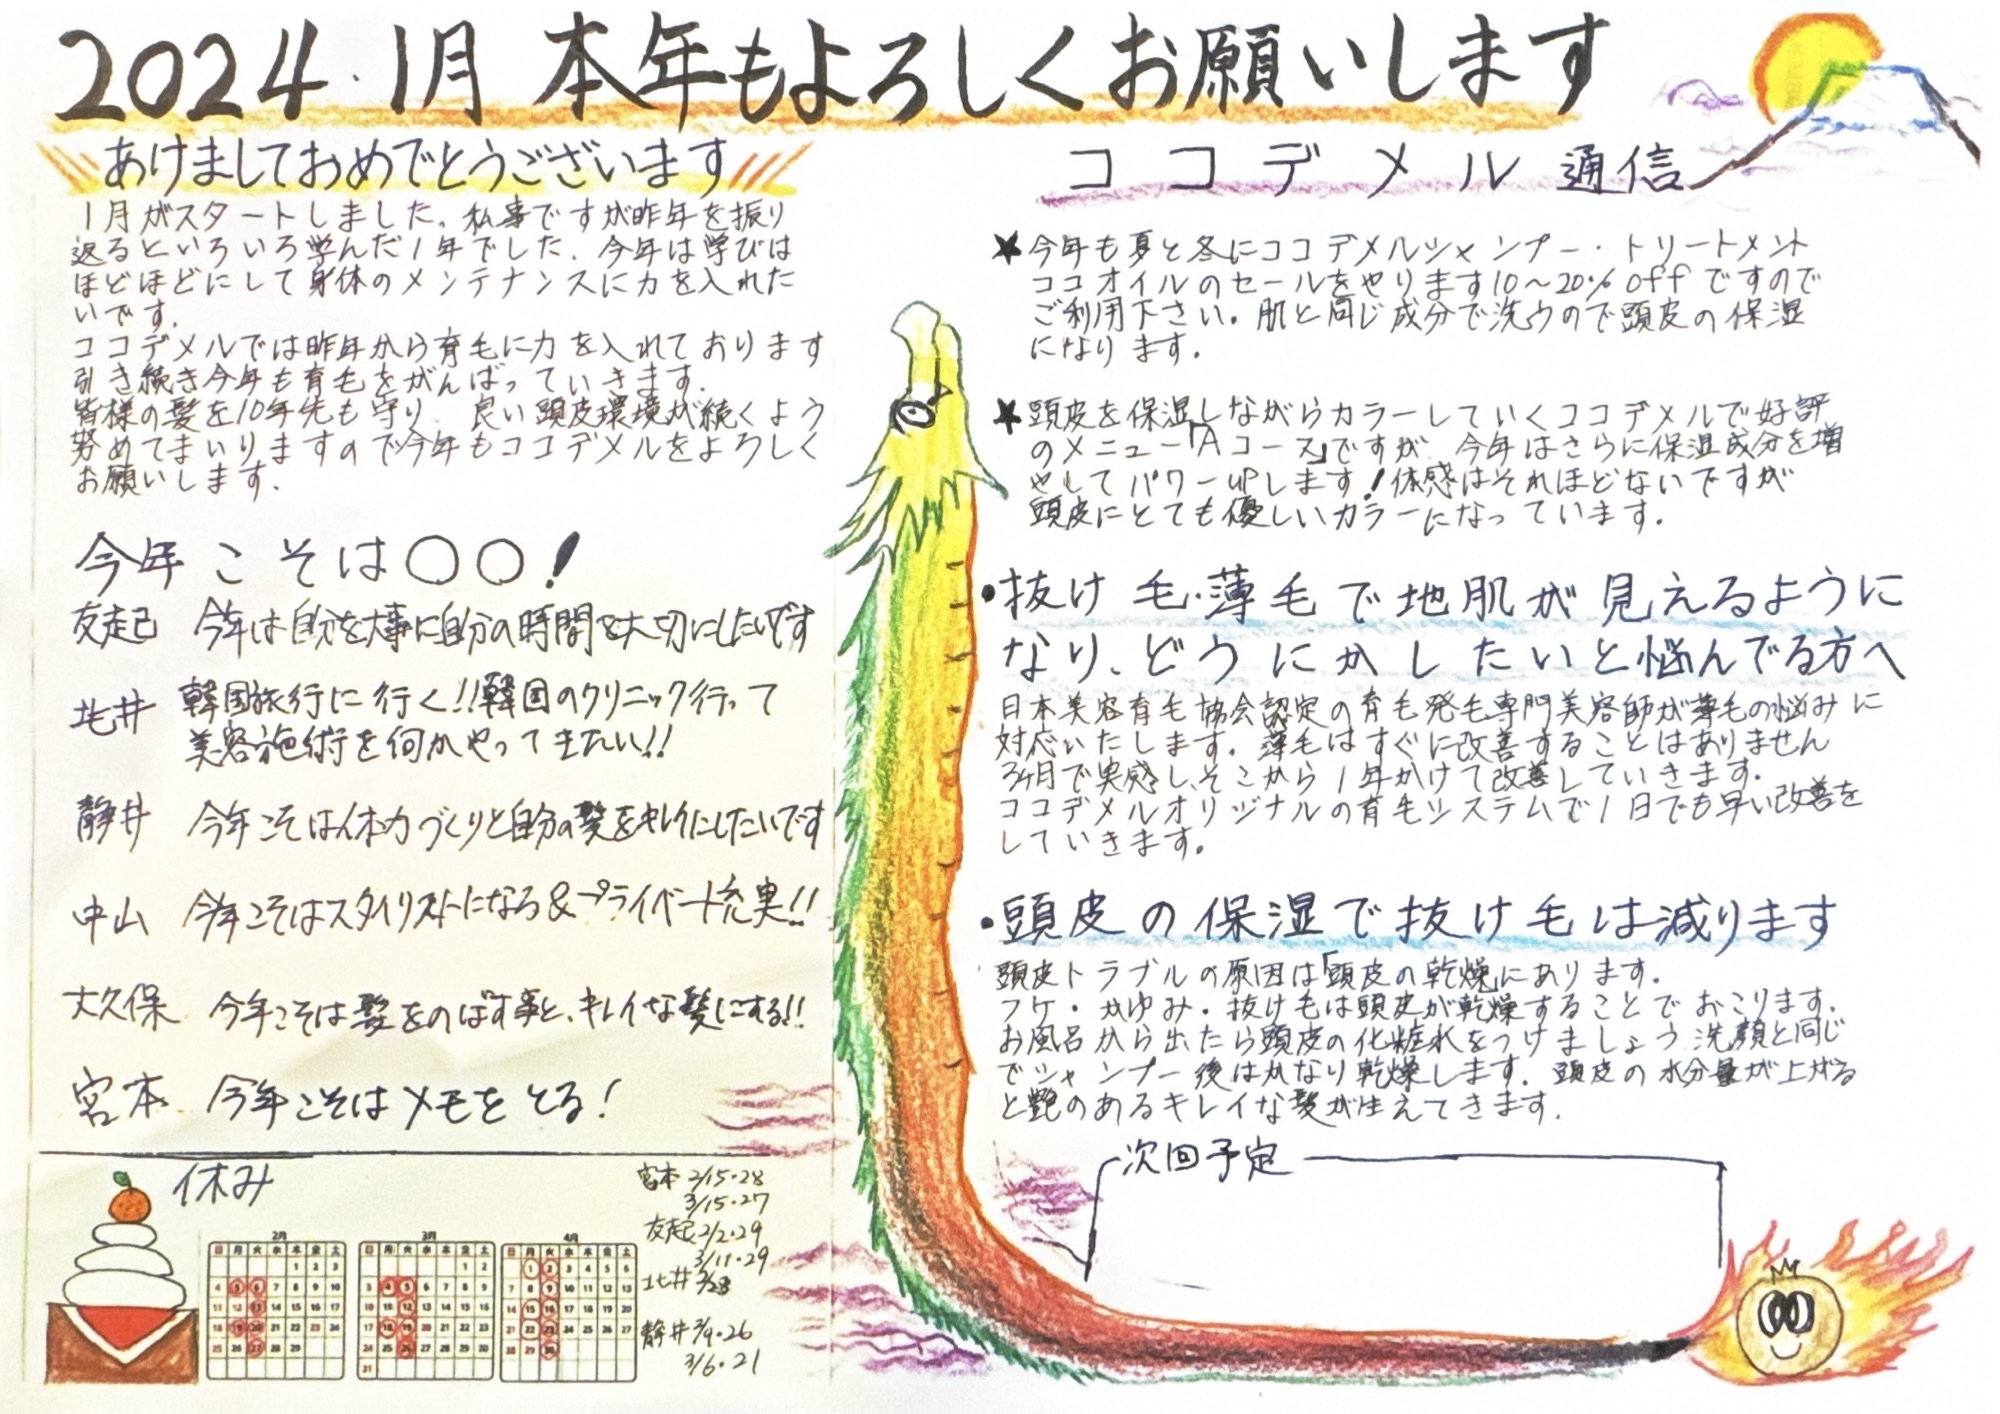 2024.1月 本年もよろしくお願いします
あけましておめでとうございます
1月がスタートしました。私事ですが昨年を振り
返るといろいろ学んだ1年でした。今年は学びは
ほどほどにして身体のメンテナンスに力を入れた
いです。
ココデメルでは昨年から育毛に力を入れております
引き続き今年も育毛をがんばっていきます。
皆様の髪を10年先も守り、良い頭皮環境が続くよう
努めてまいりますので今年もココデメルをよろしく
お願いします。
今年こそは〇〇!
友起己 今年は自分を大事に自分の時間を大切にしたいです
北井 韓国旅行に行く!!韓国のクリニック行って
美容施術を何かやってきたい!!
静井 今年こそは体力づくりと自分の髪をキレイにしたいです
中山 今年こそはスタイリストになる&プライベート充実!!
大久保 今年こそは髪をのばす事と、キレイな髪にする!!
宮本 今年こそはメモをとる!
休み
2月
日 月 火 水 木 金 土
1 2 3
4 5 6 7 8 9 10
11 12 13 14 15 16 17
18 19 20 21 22 23 24
25 26 27 28 29
3月
日 月 火 水 木 金 土
1 2
3 4 5 6 7 8 9
10 11 12 13 14 15 16
17 18 19 20 21 22 23
24 25 26 27 28 29 30
31
4月
日 月 火 水 木 金 土
1 2 3 4 5 6
7 8 9 10 11 12 13
14 15 16 17 18 19 20
21 22 23 24 25 26 27
28 29 30
宮本 2/15・28
3/15・27
友起 2/2・29
3/11・29
北井 3/28
静井 2/9・26
3/6・21
ココデメル通信
★今年も夏と冬にココデメルシャンプー・トリートメント
ココオイルのセールをやります10~20%offですので
ご利用下さい。肌と同じ成分で洗うので頭皮の保湿
になります。
★頭皮を保湿しながらカラーしていくココデメルで好評
のメニュー「Aコース」ですが、今年はさらに保湿成分を増
やしてパワーUPします!体感はそれほどないですが
頭皮にとても優しいカラーになっています。
・抜け毛・薄毛で地肌が見えるように
なり、どうにかしたいと悩んでる方へ
日本美容育毛協会認定の育毛発毛専門美容師が薄毛の悩みに
対応いたします。薄毛はすぐに改善することはありません
3ヶ月で実感し、そこから1年かけて改善していきます。
ココデメルオリジナルの育毛システムで1日でも早い改善を
していきます。
・頭皮の保湿で抜け毛は減ります
頭皮トラブルの原因は「頭皮の乾燥」にあります。
フケ・かゆみ・抜け毛は頭皮が乾燥することでおこります。
お風呂から出たら頭皮の化粧水をつけましょう洗顔と同じ
でシャンプー後はかなり乾燥します。頭皮の水分量が上がる
と艶のあるキレイな髪が生えてきます。
次回予定